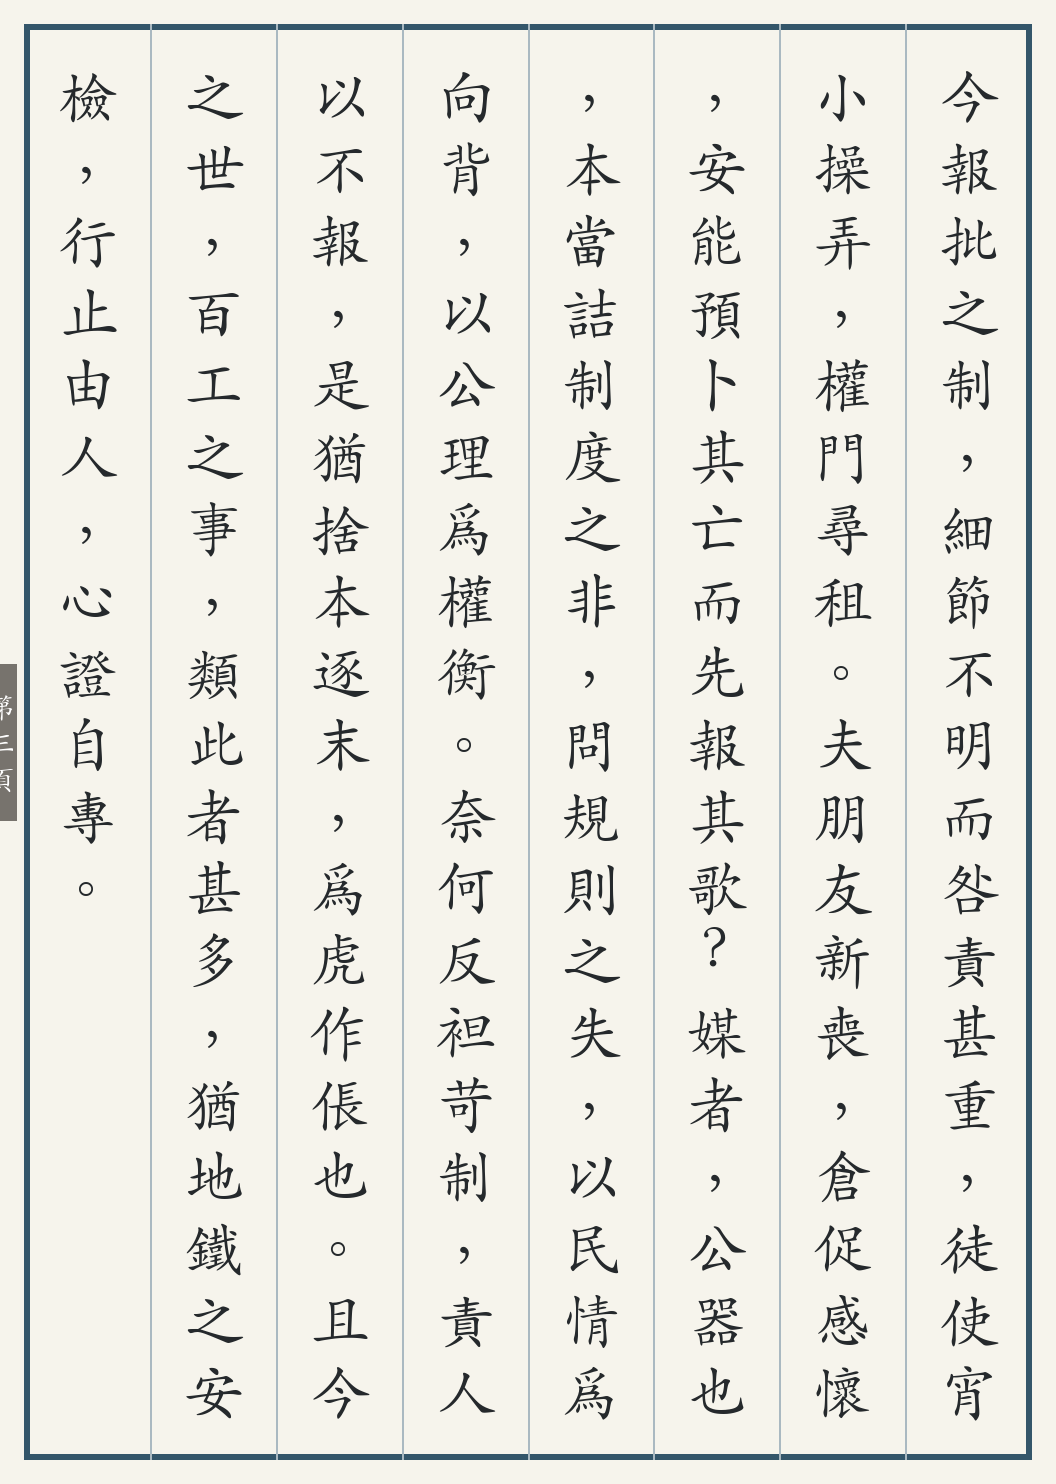 今報批之制，細節不明而咎責甚重，徒使宵
小操弄，權門尋租。夫朋友新喪，倉促感懷
，安能預卜其亡而先報其歌？媒者，公器也
，本當詰制度之非，問規則之失，以民情為
向背，以公理為權衡。奈何反袒苛制，責人
以不報，是猶捨本逐末，為虎作倀也。且今
之世，百工之事，類此者甚多，猶地鐵之安
檢，行止由人，心證自專。
第三頁